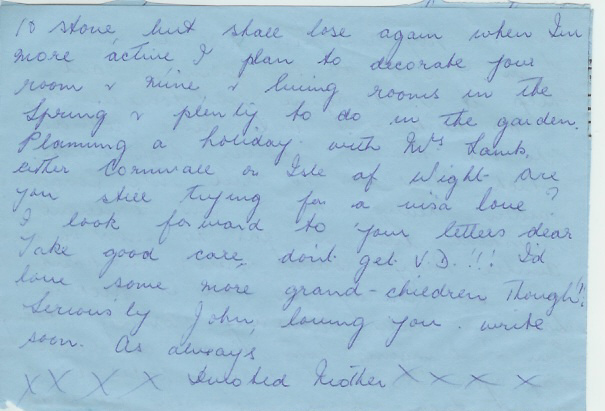 10 stone, but shall lose again when I'm
more active I plan to decorate your
room & mine & living rooms in the
Spring & plenty to do in the garden.
Planning a holiday with Mrs Lamb,
either Cornwall or Isle of Wight. Are
you still trying for a visa love?
I look forward to your letters dear
Take good care, don't get V.D.!!! I'd
love some more grand-children Though!!
Seriously John, loving you. write
soon. As always
XX X X Mother X X X X